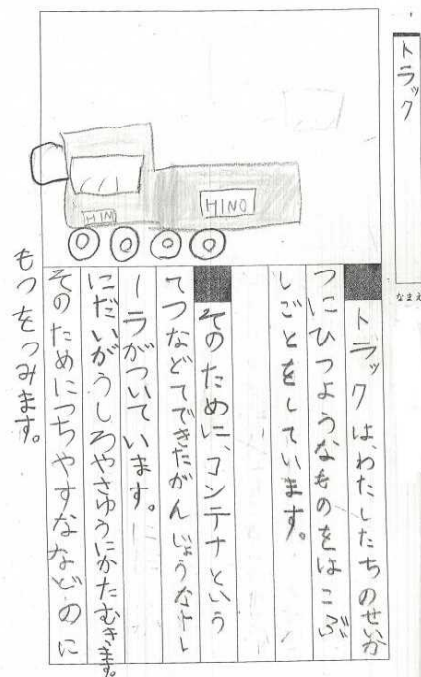 トラック
なまえ
HINO
HIN
トラックは、わたしたちのせいか
つにひつようなものをはこぶ
しごとをしています。
そのために、コンテナという
てつなどでできたがんじょうなトレ
ーラがついています。
にだいがうしろやさゆうにかたむきます。
そのためにつちやすななどのに
もつをつみます。